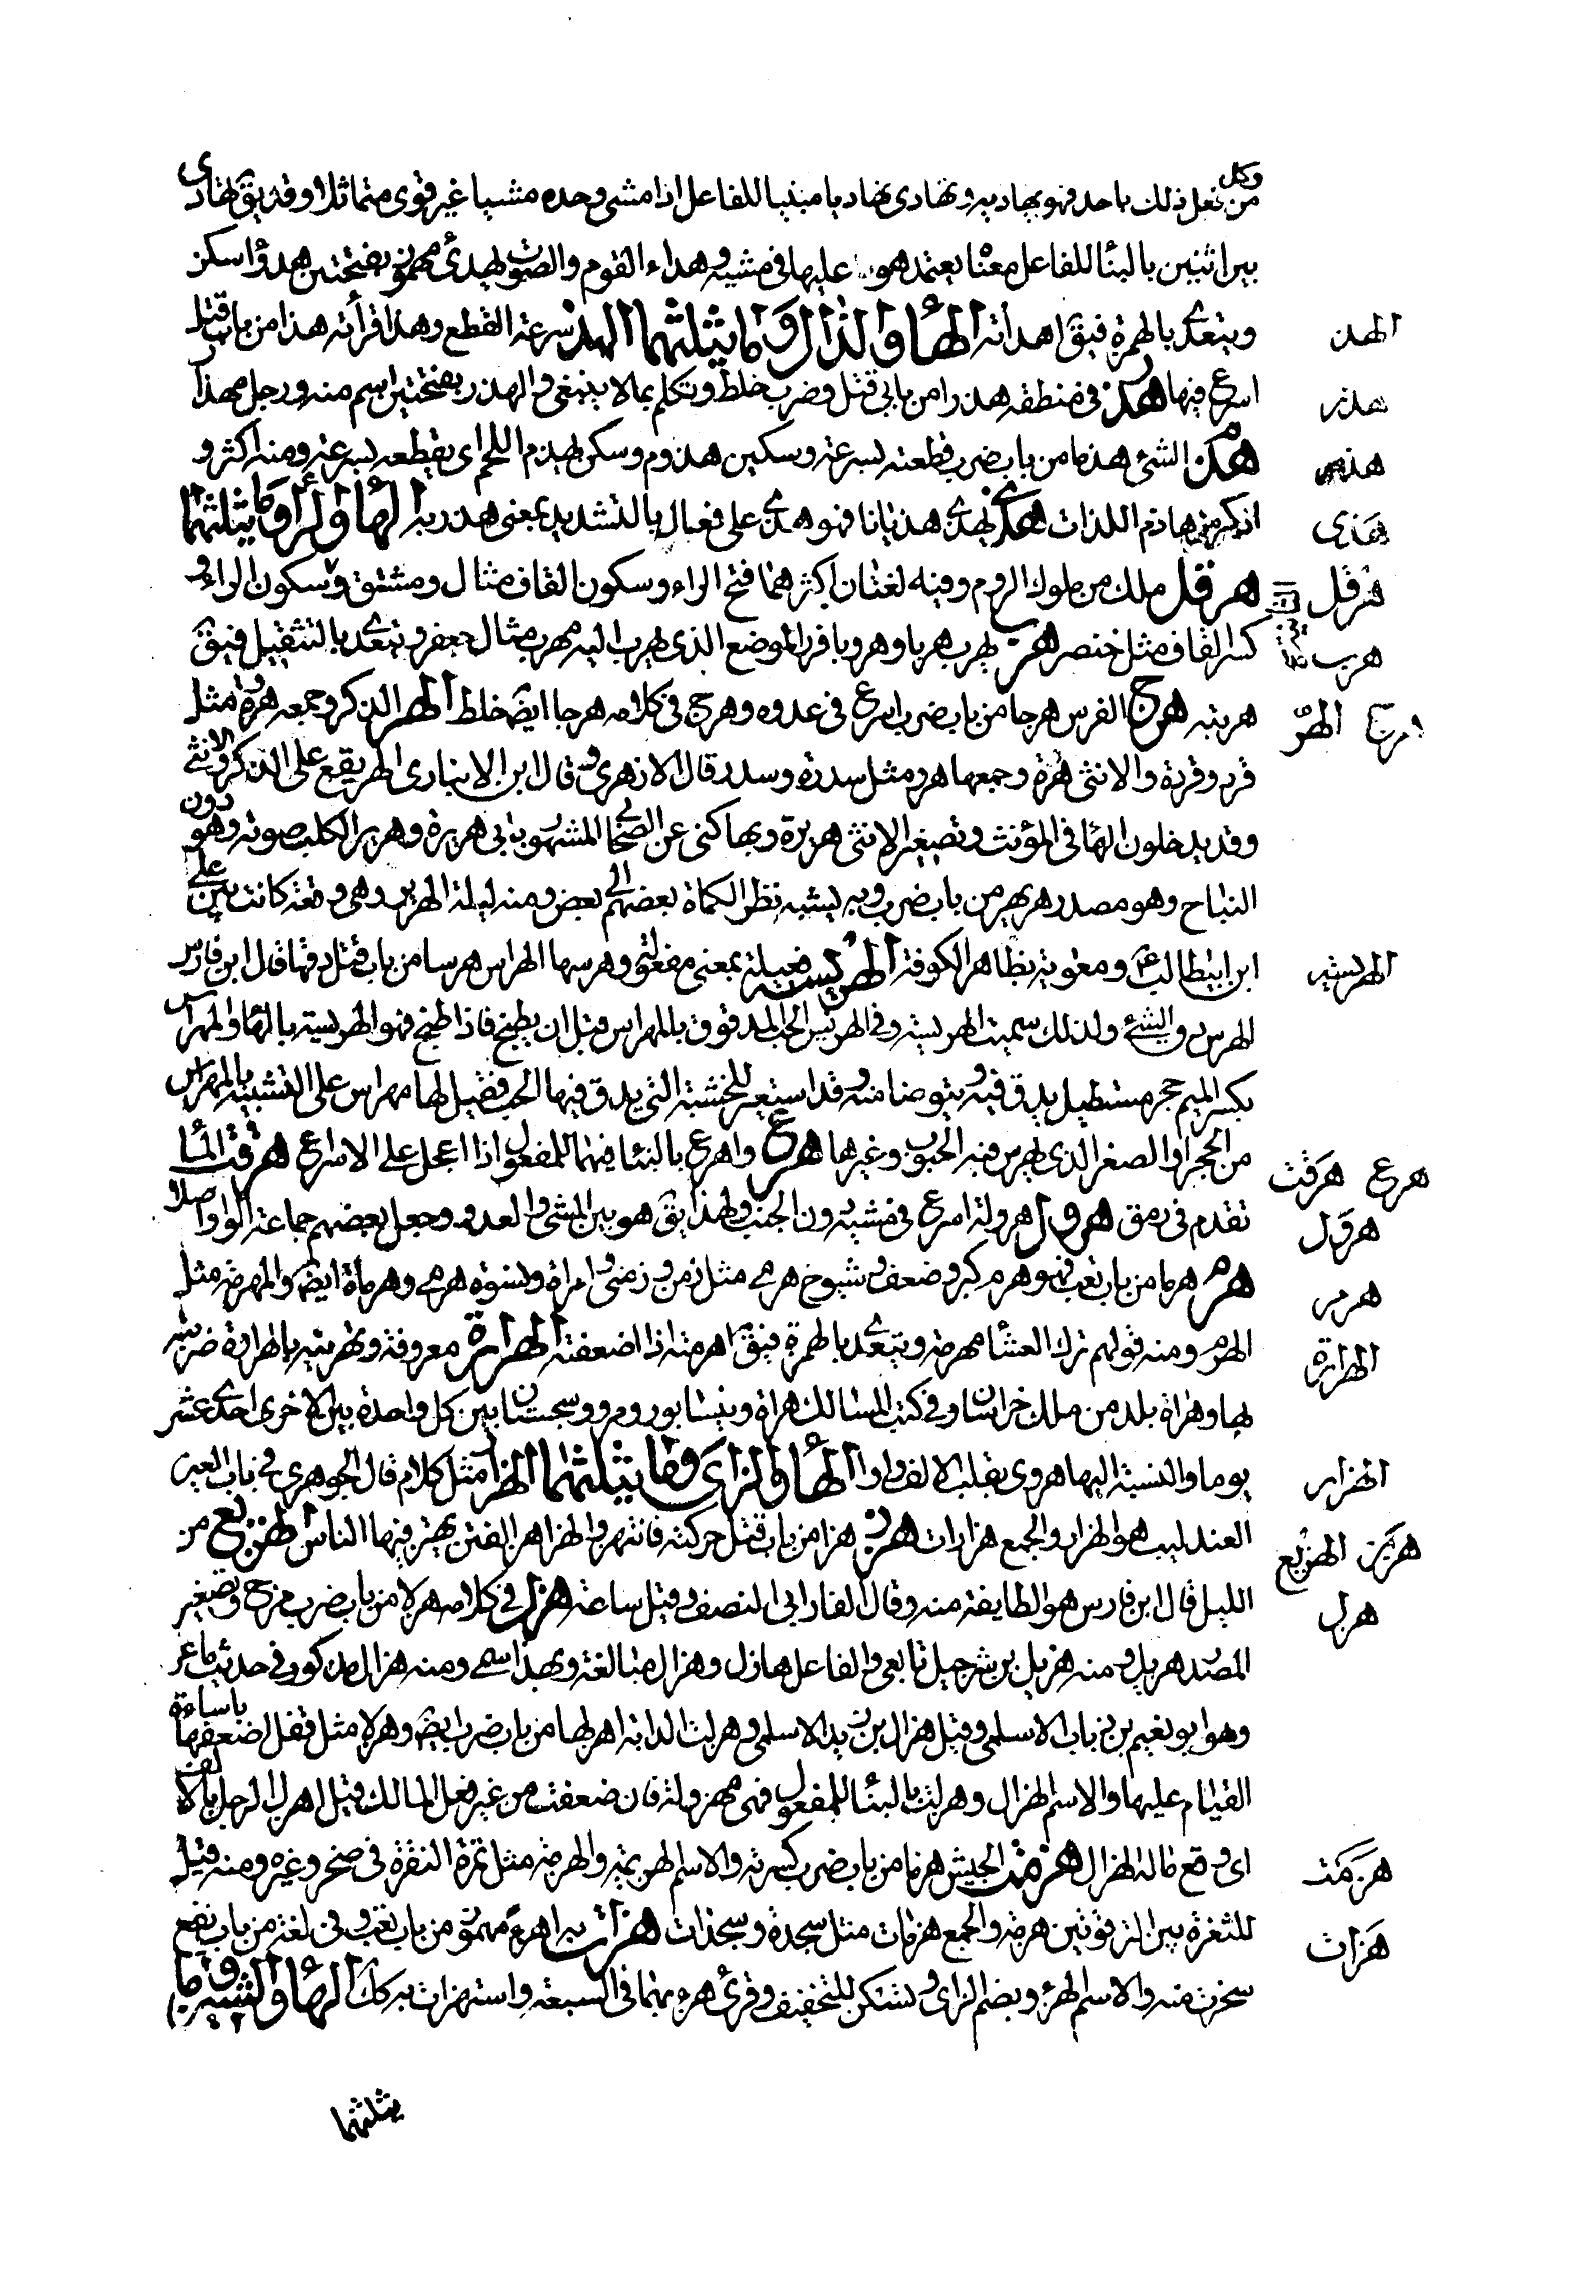 وكل
من فعل ذلك باحد فهو يهاديه وتهادى تهاديا مبنيا للفاعل اذا مشى وحده مشيا غير قوى متماثلا وقد يق تهادى
بين اثنين بالبنا للفاعل معناه يعتمد هو عليها فى مشيه وهداء القوم والصوت يهدئ مهموز بفتحتين هدوءا سكن
ويتعدى بالهمزة فيق اهدأته الهاء والذال وما يثلثهما الهذ سرعة القطع وهذا قرأته هذا من باب قتل
اسرع فيها هذر فى منطقه هذرا من بابى قتل وضرب خلط وتكلم بما لا ينبغى والهذر بفتحتين اسم منه ورجل مهذار
هذم الشئ هذما من باب ضرب قطعته بسرعة وسكين هذوم وسكن يهذم اللحم اى يقطعه بسرعة ومنه اكثروا
اذكر من هاذم اللذات هذى يهذى هذيانا فهو هذى على فعال بالتشديد بمعنى هذر به الهاء والراء وما يثلثهما
هرقل ملك من ملوك الروم وفيه لغتان اكثرهما فتح الراء وسكون القاف مثال دمشق وسكون الراء و
كسر القاف مثل خنصر هرب يهرب هربا وهروبا فر والموضع الذى يهرب اليه مهرب مثال جعفر ويتعدى بالتثقيل فيق
هربته هرج الفرس هرجا من باب ضرب اسرع فى عدوه وهرج فى كلامه هرجا ايضا خلط الهر الذكر وجمعه هررة مثل
قرد وقردة والانثى هرة وجمعها هرر مثل سدرة وسدر قال الازهرى وقال ابن الانبارى الهر يقع على الذكر والانثى
وقد يدخلون الهاء فى المؤنث وتصغير الانثى هريرة وبها كنى عن الصحابى المشهور بابى هريرة وهرير الكلب صوته وهو دون
النباح وهو مصدر هر يهر من باب ضرب وبه يشبه نظر الكماة بعضهم الى بعض ومنه ليلة الهرير وهى وقعة كانت بين على
ابن ابيطالب ع ومعوية بظاهر الكوفة الهريسة فعيلة بمعنى مفعولة وهرسها الهراس هرسا من باب قتل دقها قال ابن فارس
الهرس دق الشئ ولذلك سميت الهريسة وفى الهريس الحب المدقوق بالمهراس قبل ان يطبخ فاذا طبخ فهو الهريسة بالهاء والمهراس
بكسر الميم حجر مستطيل يدق فيه ويتوضا منه وقد استعير للخشبة التى يدق فيها الحب فقيل لها مهراس على التشبيه بالمهراس
من الحجر او الصفر الذى يهرس فيه الحبوب وغيرها هرع واهرع بالبناء فيهما للمفعول اذا اعجل على الاسراع هرقت الماء
تقدم فى رمق هرول هرولة اسرع فى مشيه دون الجنب ولهذا يق هو بين المشى والعدو وجعل بعضهم جماعة الواو اصلا
هرم هرما من باب تعب فهو هرم كبر وضعف وشيوخ هرمى مثل زمن وزمنى وامراة ونسوة هرمى وهرماة ايضا والمهرمة مثل
الهرم ومنه قولهم ترك العشاء مهرمة ويتعدى بالهمزة فيق اهرمته اذا اضعفته الهراوة معروفة وتهريته بالهراوة ضربته
بها وهراة بلد من ملك خراسان وفى كتب المسالك هراة ونيسابور ومرو وسجستان بين كل واحدة بين الاخرى احدى عشر
يوما والنسبة اليها هروى بقلب الالف واوا الهاء والزاى وما يثلثهما الهزار مثل كلام قال الجوهرى فى باب العين
العندليب هو الهزار والجمع هزارات هزز هزا من باب قتل حركته فاهتز والهزاهز الفتن يهتز فيها الناس الهزيع من
الليل قال ابن فارس هو الطايفة منه وقال الفارابى النصف وقيل ساعة هزل فى كلامه هزلا من باب ضرب مزح وتصغير
المصدر هزيل ومنه هزيل بن شرحبيل تابعى والفاعل هازل وهزال مبالغة وبهذا سمى ومنه هزال المذكور فى حديث ماعز
وهو ابو نعيم بن ذباب الاسلمى وقيل هزال بن يزيد الاسلمى وهزلت الدابة اهزلها من باب ضرب ايضا وهزلا مثل قفل اضعفها باساءة
القيام عليها والاسم الهزال وهزلت بالبناء للمفعول فهى مهزولة فان ضعفت من غير فعل المالك قيل اهزل الرجل بالالف
اى وقع فى ماله الهزال هزمت الجيش هزما من باب ضرب كسرته والاسم الهزيمة والهزمة مثل تمرة النقرة فى صخر وغيره ومنه قيل
للثغرة بين الترقوتين هزمة والجمع هزمات مثل سجدة وسجدات هزات به اهزء مهموز من باب تعب وفى لغة من باب نفع
سخرت منه والاسم الهزؤ وبضم الزاى وتسكن للتخفيف وقرئ هزء بهما فى السبعة واستهزات به كك الهاء والشين وما
يثلثهما
الهذ
هذر
هذم
هذى
هرقل
هرب
الهر
الهريسة
هرع هرقت
هرول
هرم
الهراوة
الهزار
هززت الهزيع
هزل
هزمت
هزات